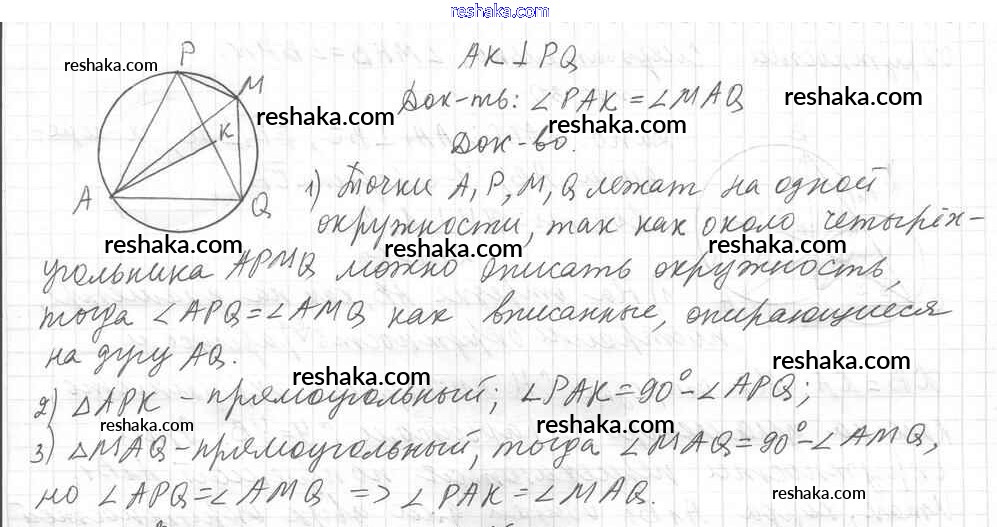 reshaka.com
AK⊥PQ
reshaka.com
P
M
K
A
Q
reshaka.com
Док-ть: ∠PAK = ∠MAQ
reshaka.com
reshaka.com
Док-во.
1) Точки A, P, M, Q лежат на одной
окружности, так как около четырёх-
reshaka.com
reshaka.com
reshaka.com
угольника APMQ можно описать окружность,
тогда ∠APQ = ∠AMQ как вписанные, опирающиеся
на дугу AQ.
reshaka.com
reshaka.com
2) △APK - прямоугольный; ∠PAK = 90° - ∠APQ;
reshaka.com
reshaka.com
3) △MAQ - прямоугольный, тогда ∠MAQ = 90° - ∠AMQ,
но ∠APQ = ∠AMQ => ∠PAK = ∠MAQ.
reshaka.com